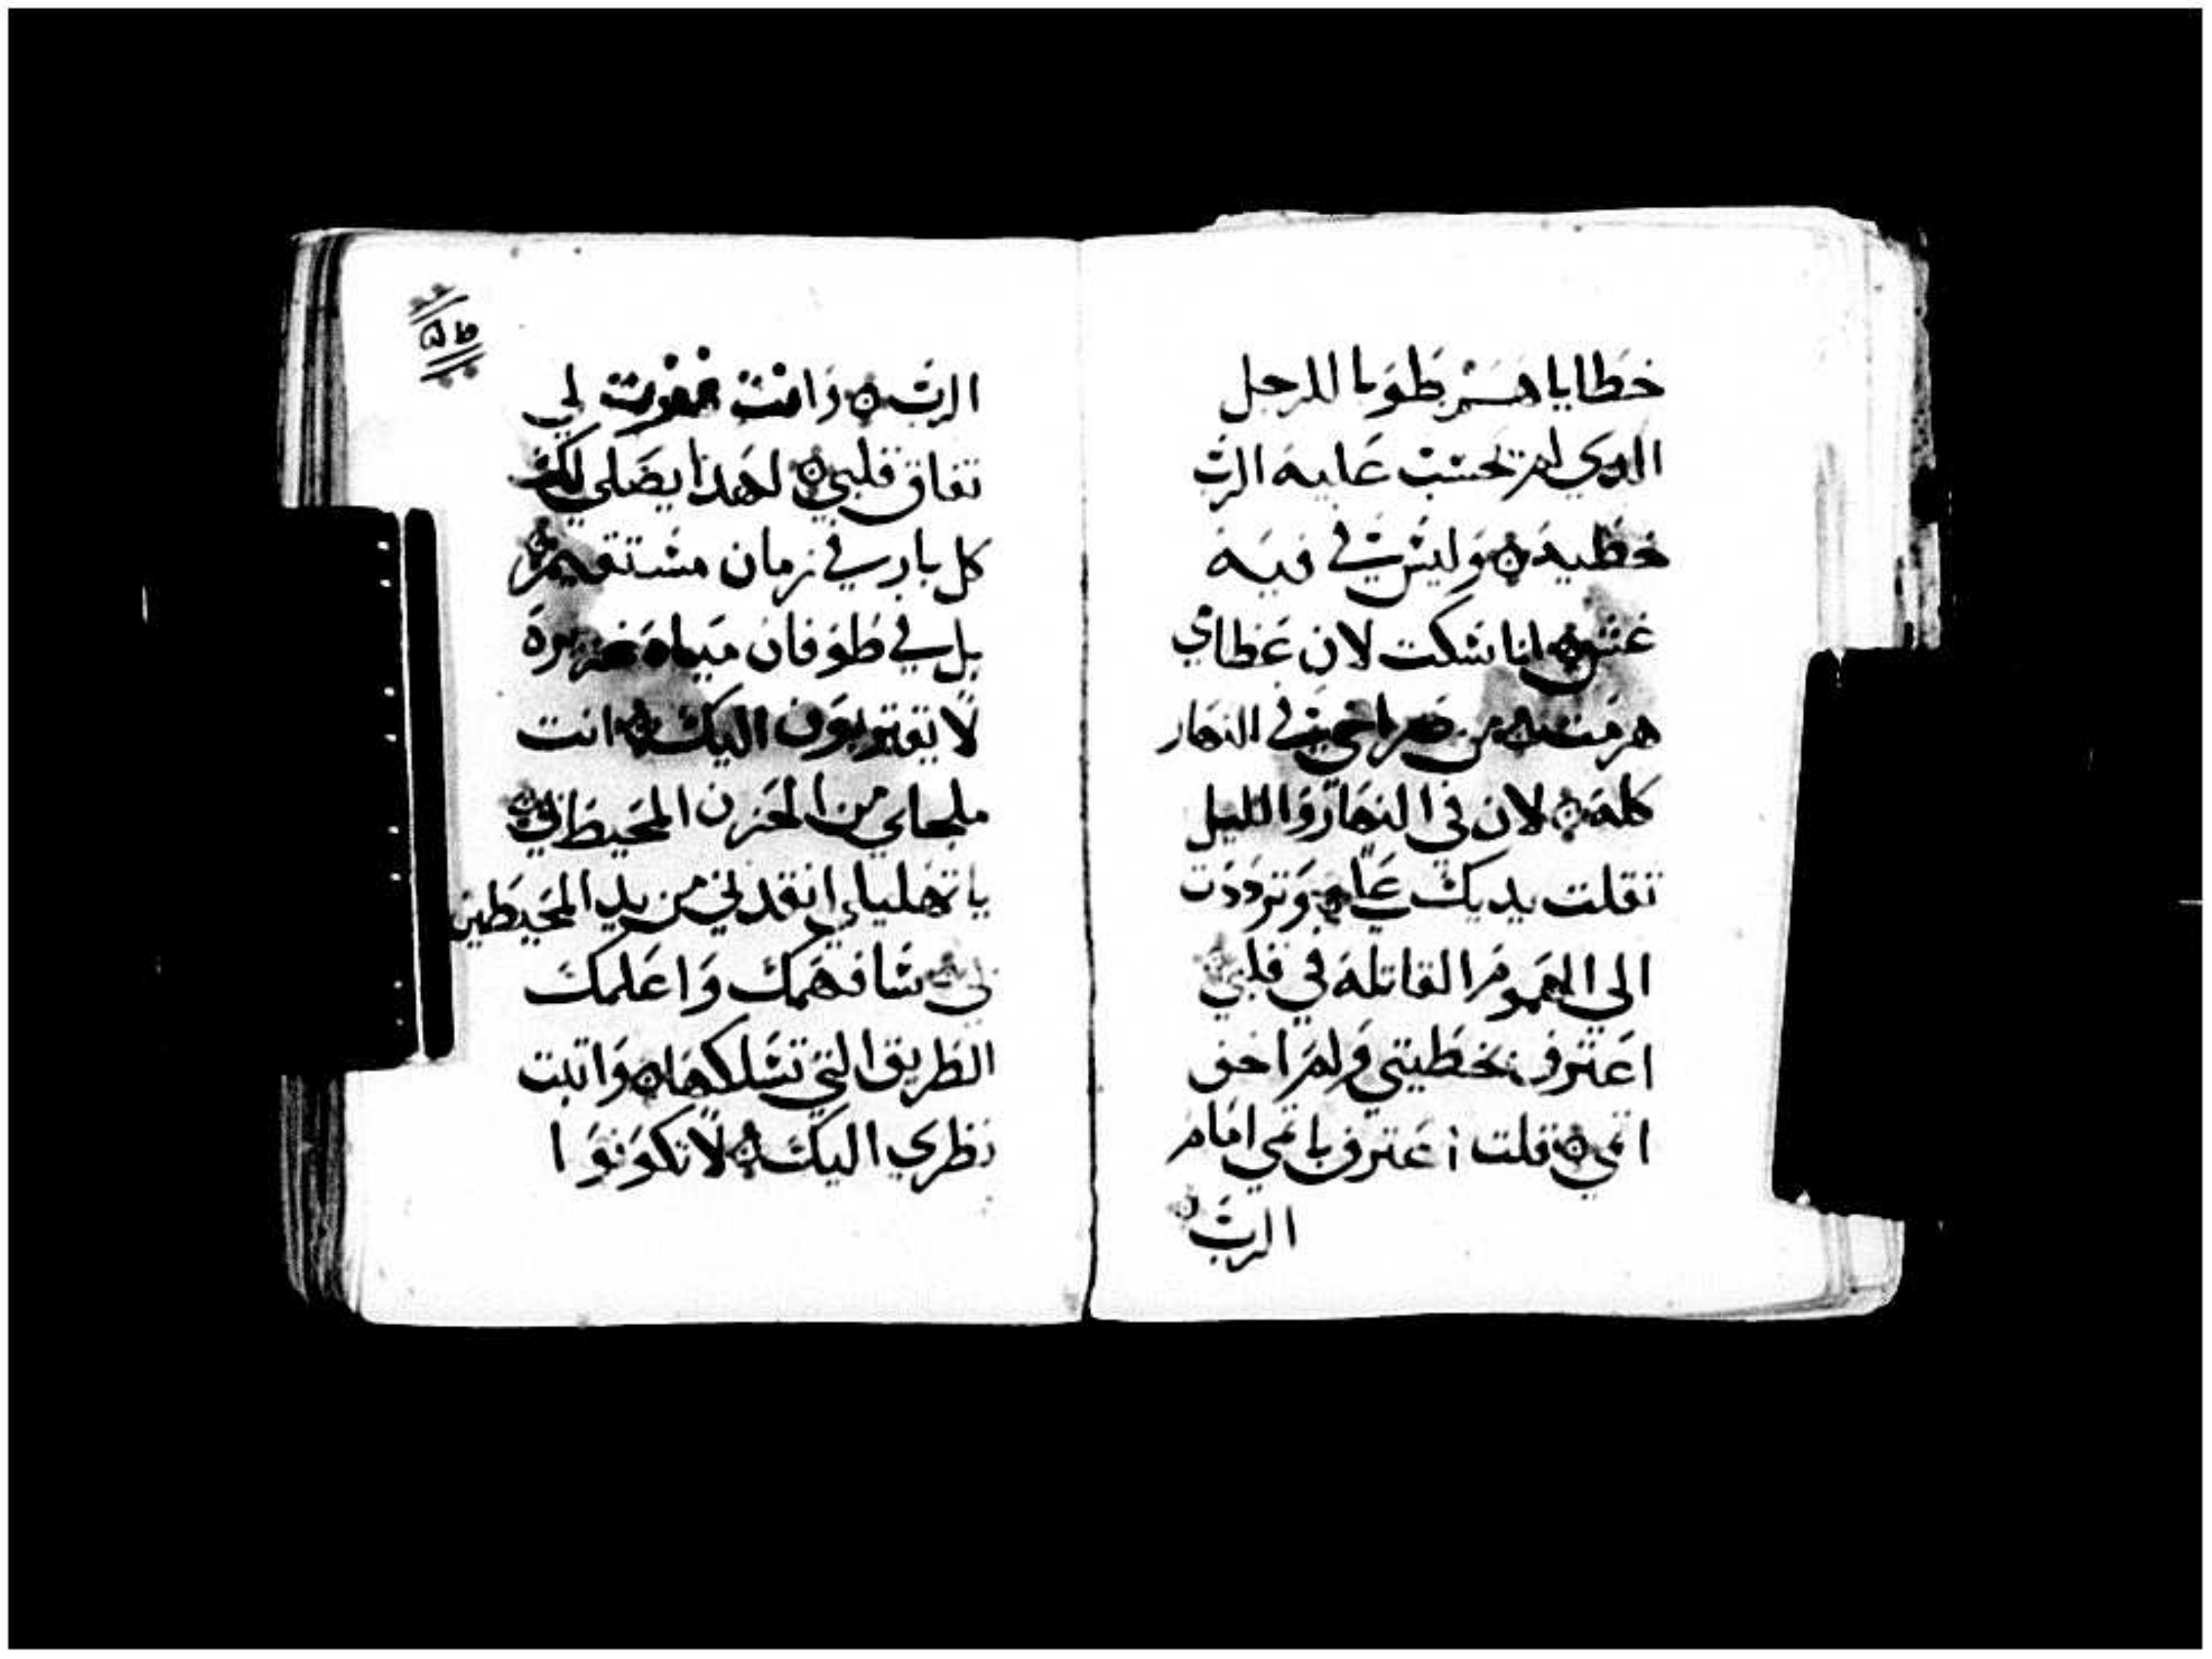 خطاياهم طوبا للرجل
الدي لم تحسب عليه الرب
خطيه ۞ وليس في فيه
غش ۞ انا سكت لان عظامي
هرمت ۞ من صراخي في النهار
كله ۞ لان في النهار والليل
تقلت يديك علي ۞ وترددت
الي الهموم القاتله في قلبي ۞
اعترف بخطيتي ولم اخف
اتمي ۞ قلت اعترف باتمي امام
الرب ۞
الرب ۞ وانت غفرت لي
نفاق قلبي ۞ لهدا يصلي لك
كل بار في زمان مستقيم ۞
بل في طوفان مياه غزيره
لا يقتربون اليك ۞ انت
ملجاي من الحزن المحيط بي ۞
يا تهليلي انقدني من يد المحيطين
بي ۞ سافهمك واعلمك
الطريق التي تسلكها ۞ واتبت
نظري اليك ۞ لا تكونوا